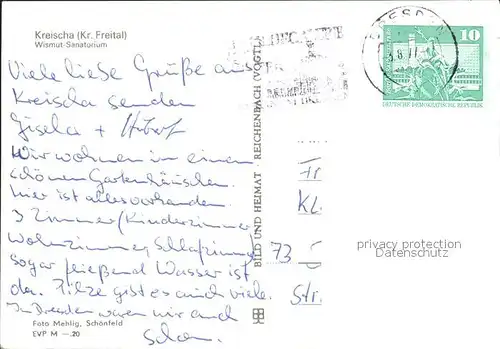 Kreischa (Kr. Freital)
Wismut-Sanatorium
Viele liebe Grüße aus
Kreischa senden
Gisela +
Wir wohnen in einem
schönen Gartenhäuschen.
Hier ist alles vorhanden.
3 Zimmer (Kinderzimmer,
Wohnzimmer, Schlafzimmer)
sogar fließend Wasser ist
da. Pilze gibt es auch viele.
In Dresden waren wir auch
schon.
Foto Mehlig, Schönfeld
EVP M —.20
BILD UND HEIMAT · REICHENBACH (VOGTL)
10
DEUTSCHE DEMOKRATISCHE REPUBLIK
Fr
Kl.
73
Str.
privacy protection
Datenschutz